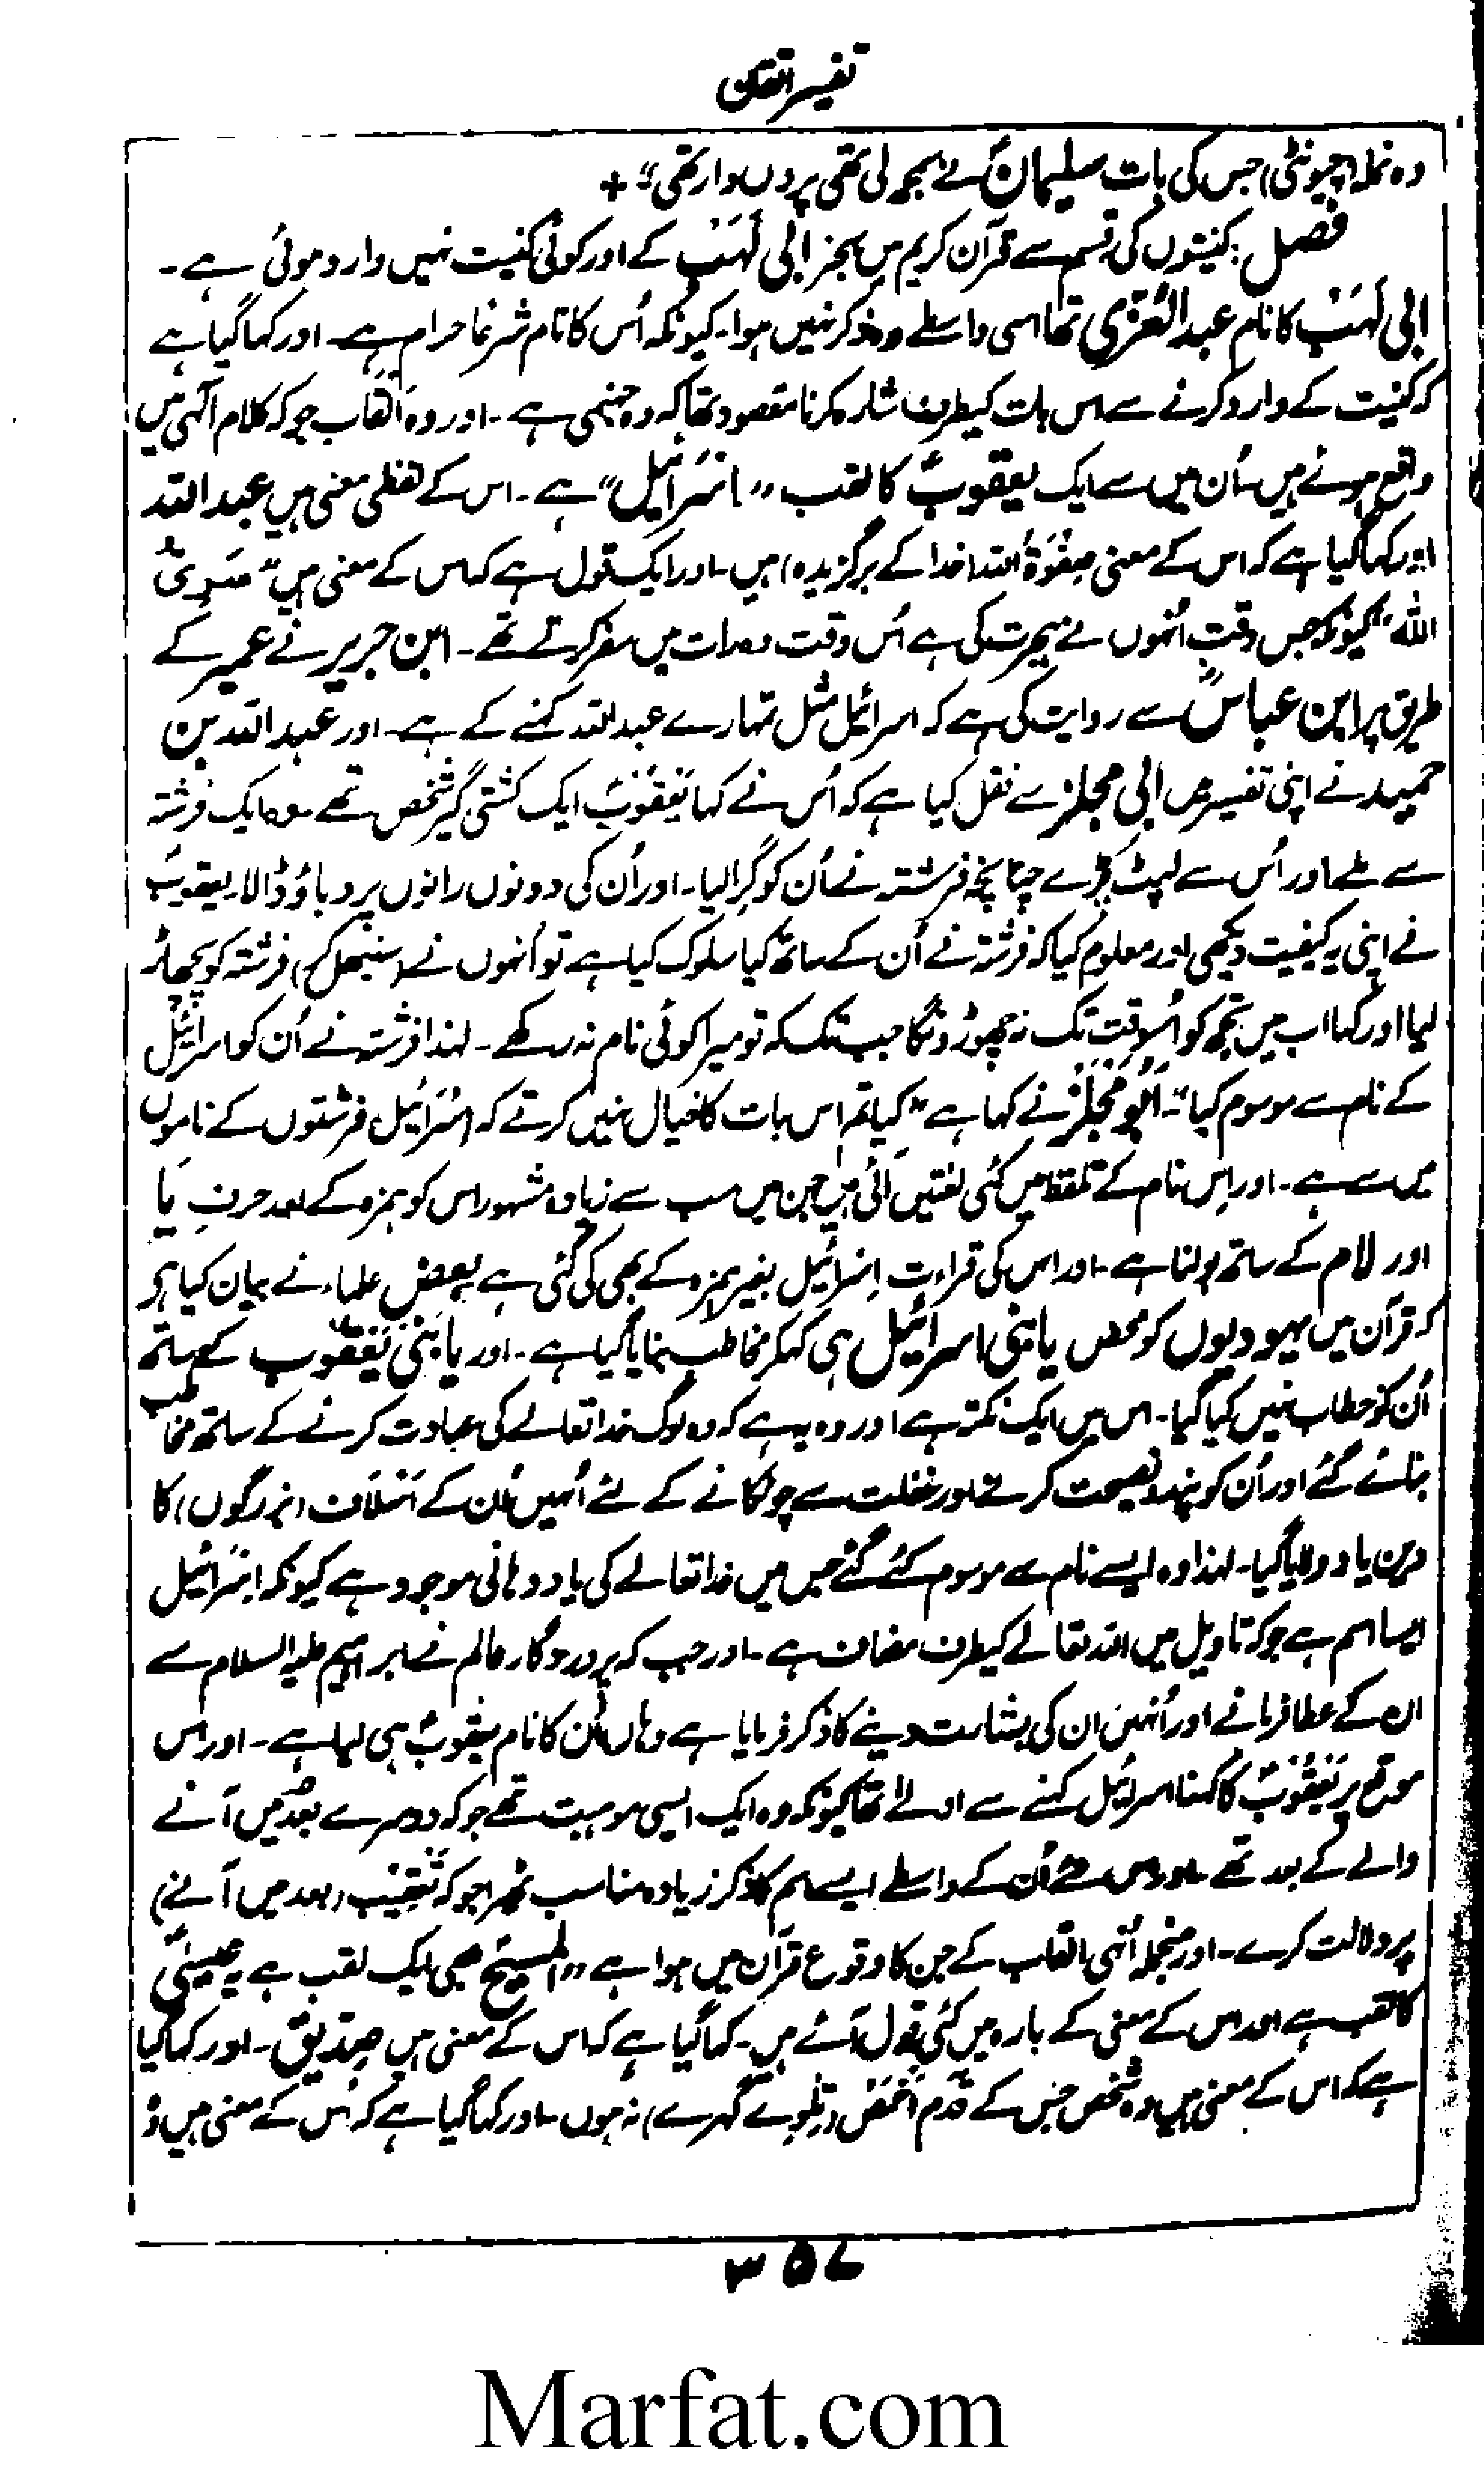 تفسیر اتقان
وہ نملہ (چیونٹی) جس کی بات سلیمانؑ نے سمجھ لی تھی پردں دار تھی" +
فصل: کنیتوں کی قسم سے قرآن کریم میں بجز ابی لَہَبْ کے اور کوئی کنیت نہیں وارد ہوئی ہے۔
ابی لَہَبْ کا نام عبد العُزّٰی تھا اسی واسطے وہ ذکر نہیں ہوا۔ کیونکہ اُس کا نام شرعًا حرام ہے۔ اور کہا گیا ہے
کہ کنیت کے وارد کرنے سے اس بات کیطرف اشارہ کرنا مقصود تھا کہ وہ جہنمی ہے۔ اور وہ اَلْقاب جو کہ کلام الٰہی میں
واقع ہوئے ہیں اُن میں سے ایک یعقوبؑ کا لقب "اِسْرَائیل" ہے۔ اس کے لفظی معنی ہیں عبد اللہ
اور کہا گیا ہے کہ اس کے معنی صِفْوَۃُ اللہ (خدا کے برگزیدہ) ہیں۔ اور ایک قول ہے کہ اس کے معنی ہیں "سَرِیُّ
اللہ" کیونکہ جس وقت اُنہوں نے ہجرت کی ہے اُس وقت وہ رات میں سفر کرتے تھے۔ ابن جریر نے عمیر کے
طریق پر ابن عباسؓ سے روایت کی ہے کہ اسرائیل مثل تمہارے عبد اللہ کہنے کے ہے۔ اور عبد اللہ بن
حمید نے اپنی تفسیر میں ابی مجلز سے نقل کیا ہے کہ اُس نے کہا یَعْقُوْبؑ ایک کشتی گیر شخص تھے وہ ایک فرشتہ
سے ملے اور اُس سے لپٹ پڑے چنانچہ فرشتہ نے اُن کو گرا لیا۔ اور اُن کی دونوں رانوں پر دباؤ ڈالا۔ یعقوبؑ
نے اپنی یہ کیفیت دیکھی اور معلوم کیا کہ فرشتہ نے اُن کے ساتھ کیا سلوک کیا ہے تو اُنہوں نے (سنبھل کر) فرشتہ کو پچھاڑ
لیا اور کہا اب میں تجھ کو اُسوقت تک نہ چھوڑونگا جب تک کہ تو میرا کوئی نام نہ رکھے۔ لہذا فرشتہ نے اُن کو اسرائیل
کے نام سے موسوم کیا"۔ اَبُوْ مِجْلَزْ نے کہا ہے "کیا تم اس بات کا خیال نہیں کرتے کہ اِسْرَائیل فرشتوں کے ناموں
میں سے ہے۔ اور اِس نام کے تلفظ میں کئی لغتیں آئی ہیں جن میں سب سے زیادہ مشہور اس کو ہمزہ کے بعد حرفِ یَا
اور لام کے ساتھ بولنا ہے۔ اور اس کی قراءت اِسْرَائیل بغیر ہمزہ کے بھی کی گئی ہے۔ بعض علماء نے بیان کیا ہے
کہ قرآن میں یہودیوں کو محض یا بنی اسرائیل ہی کہکر مخاطب بنایا گیا ہے۔ اور یَا بَنِیْ یَعْقُوب کے ساتھ
اُن کو خطاب نہیں کیا گیا۔ اس میں ایک نکتہ ہے اور وہ یہ ہے کہ وہ لوگ خدا تعالےٰ کی عبادت کرنے کے ساتھ مخاطب
بنائے گئے اور اُن کو پند و نصیحت کرنے اور غفلت سے چونکانے کے لئے اُنہیں اُن کے اَسْلَاف (بزرگوں) کا
دین یاد دلایا گیا۔ لہذا وہ ایسے نام سے موسوم کئے گئے جس میں خدا تعالےٰ کی یاد دہانی موجود ہے کیونکہ اِسْرَائیل
ایسا اسم ہے جو کہ تاویل میں اللہ تعالےٰ کیطرف مضاف ہے۔ اور جب کہ پروردگار عالم نے ابراہیم علیہ السلام سے
ان کے عطا فرمانے اور اُنہیں ان کی بشارت دینے کا ذکر فرمایا ہے وہاں اُن کا نام یعقوبؑ ہی لیا ہے۔ اور اس
موقع پر یَعْقُوْبؑ کا کہنا اسرائیل کہنے سے اولےٰ تھا کیونکہ وہ ایک ایسی موہبت تھے جو کہ دوسرے بعد میں آنے
والے کے بعد تھے اور اس لئے اُن کے واسطے ایسے اسم کا ذکر زیادہ مناسب ٹھہرا جو کہ تَعْقِیْب (بعد میں آنے)
پر دلالت کرے۔ اور منجملہ اُنہی القاب کے جن کا وقوع قرآن میں ہوا ہے "المسیح" بھی ایک لقب ہے یہ عیسیٰؑ
کا لقب ہے اور اس کے معنی کے بارہ میں کئی قول آئے ہیں۔ کہا گیا ہے کہ اس کے معنی ہیں صِدِّیْق۔ اور کہا گیا
ہے کہ اس کے معنی ہیں وہ شخص جس کے قدم اَخْمَصْ (تلوے گہرے) نہ ہوں۔ اور کہا گیا ہے کہ اُس کے معنی ہیں وُ
۳۵۷
Marfat.com